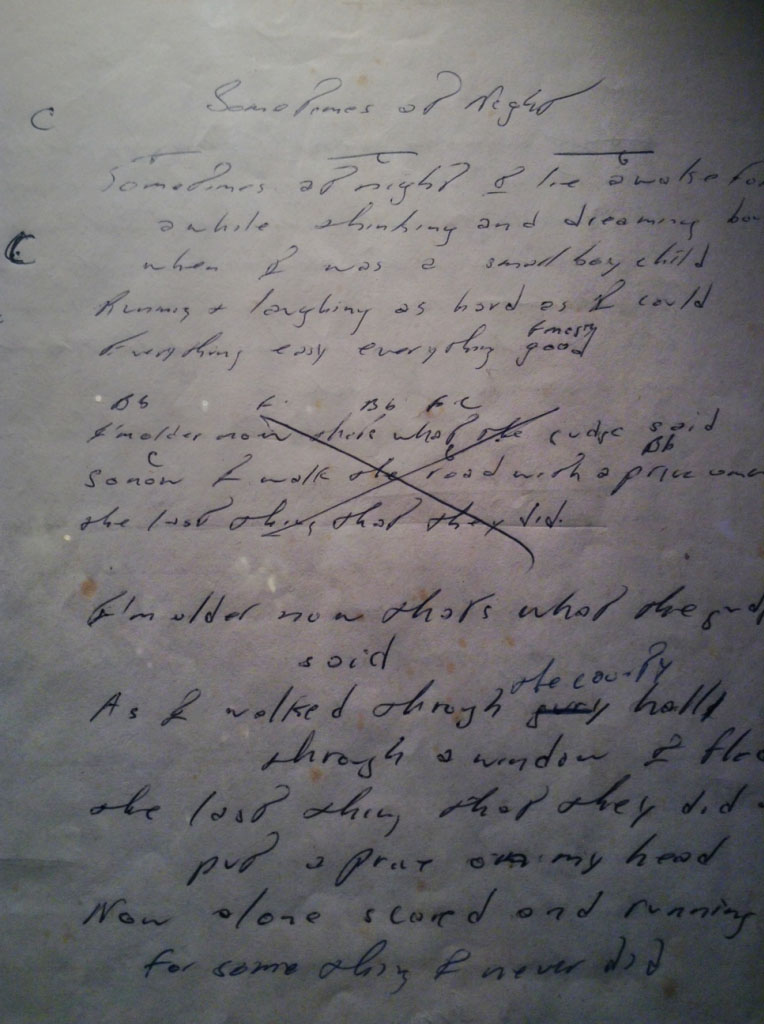 C
Sometimes at Night
Sometimes at night I lie awake for
C
awhile thinking and dreaming
when I was a small boy child
Running + laughing as hard as I could
I mostly
Everything easy everything good
Bb F Bb F C
I'm older now that's what the judge said
C Bb
So now I walk the road with a price
the last thing that they did.
I'm older now that's what the
said
the county
As I walked through halls
through a window I
the last thing that they did
put a price on my head
Now alone scared and running
for some thing I never did